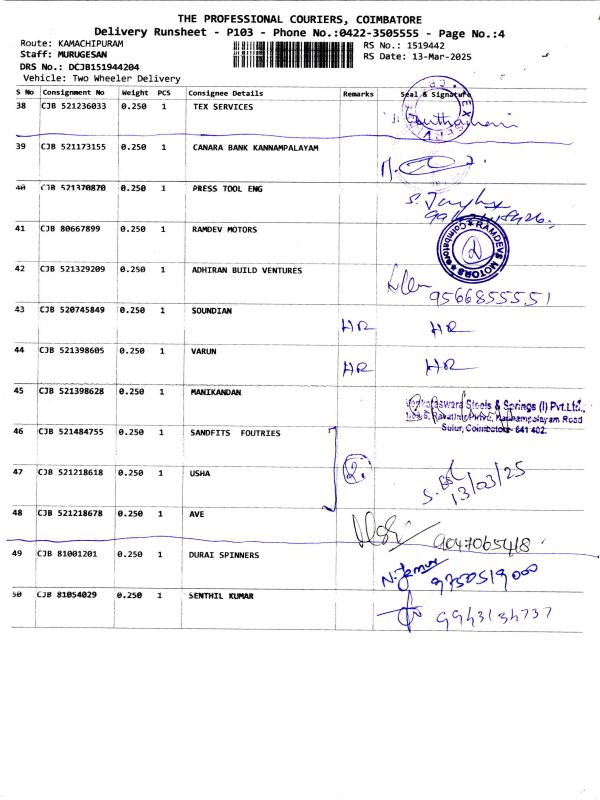 THE PROFESSIONAL COURIERS, COIMBATORE
Delivery Runsheet - P103 - Phone No.:0422-3505555 - Page No.:4
Route: KAMACHIPURAM
RS No.: 1519442
Staff: MURUGESAN
RS Date: 13-Mar-2025
DRS No.: DCJB151944204
Vehicle: Two Wheeler Delivery
S No Consignment No Weight PCS Consignee Details Remarks Seal & Signature
38 CJB 521236033 0.250 1 TEX SERVICES
39 CJB 521173155 0.250 1 CANARA BANK KANNAMPALAYAM
40 CJB 521370870 0.250 1 PRESS TOOL ENG
41 CJB 80667899 0.250 1 RAMDEV MOTORS
RAMDEVS MOTORS Coimbatore
42 CJB 521329209 0.250 1 ADHIRAN BUILD VENTURES
9566855551
43 CJB 520745849 0.250 1 SOUNDIAN HR HR
44 CJB 521398605 0.250 1 VARUN HR HR
45 CJB 521398628 0.250 1 MANIKANDAN
Steels & Springs (I) Pvt.Ltd.,
Kannampalayam Road
Sulur, Coimbatore- 641 402.
46 CJB 521484755 0.250 1 SANDFITS FOUTRIES
47 CJB 521218618 0.250 1 USHA 2.
13/03/25
48 CJB 521218678 0.250 1 AVE
9047065418
49 CJB 81001201 0.250 1 DURAI SPINNERS
9750519000
50 CJB 81054029 0.250 1 SENTHIL KUMAR
9943134737